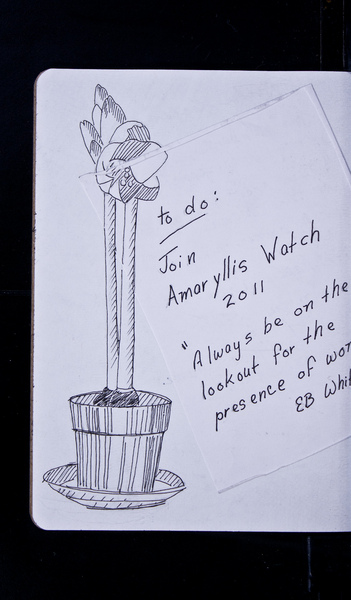 to do:
Join
Amaryllis Watch
2011
"Always be on the
lookout for the
presence of
EB